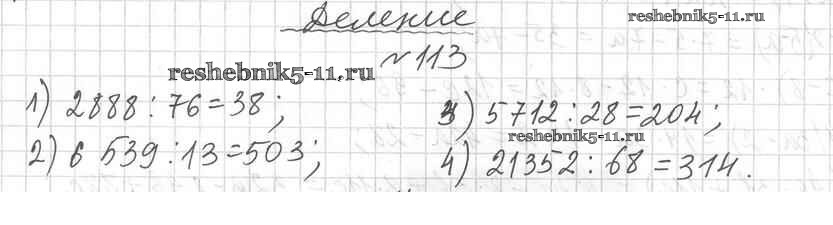 Деление
reshebnik5-11.ru
№113
reshebnik5-11.ru
1) 2888 : 76 = 38;
2) 6 539 : 13 = 503;
3) 5712 : 28 = 204;
reshebnik5-11.ru
4) 21352 : 68 = 314.